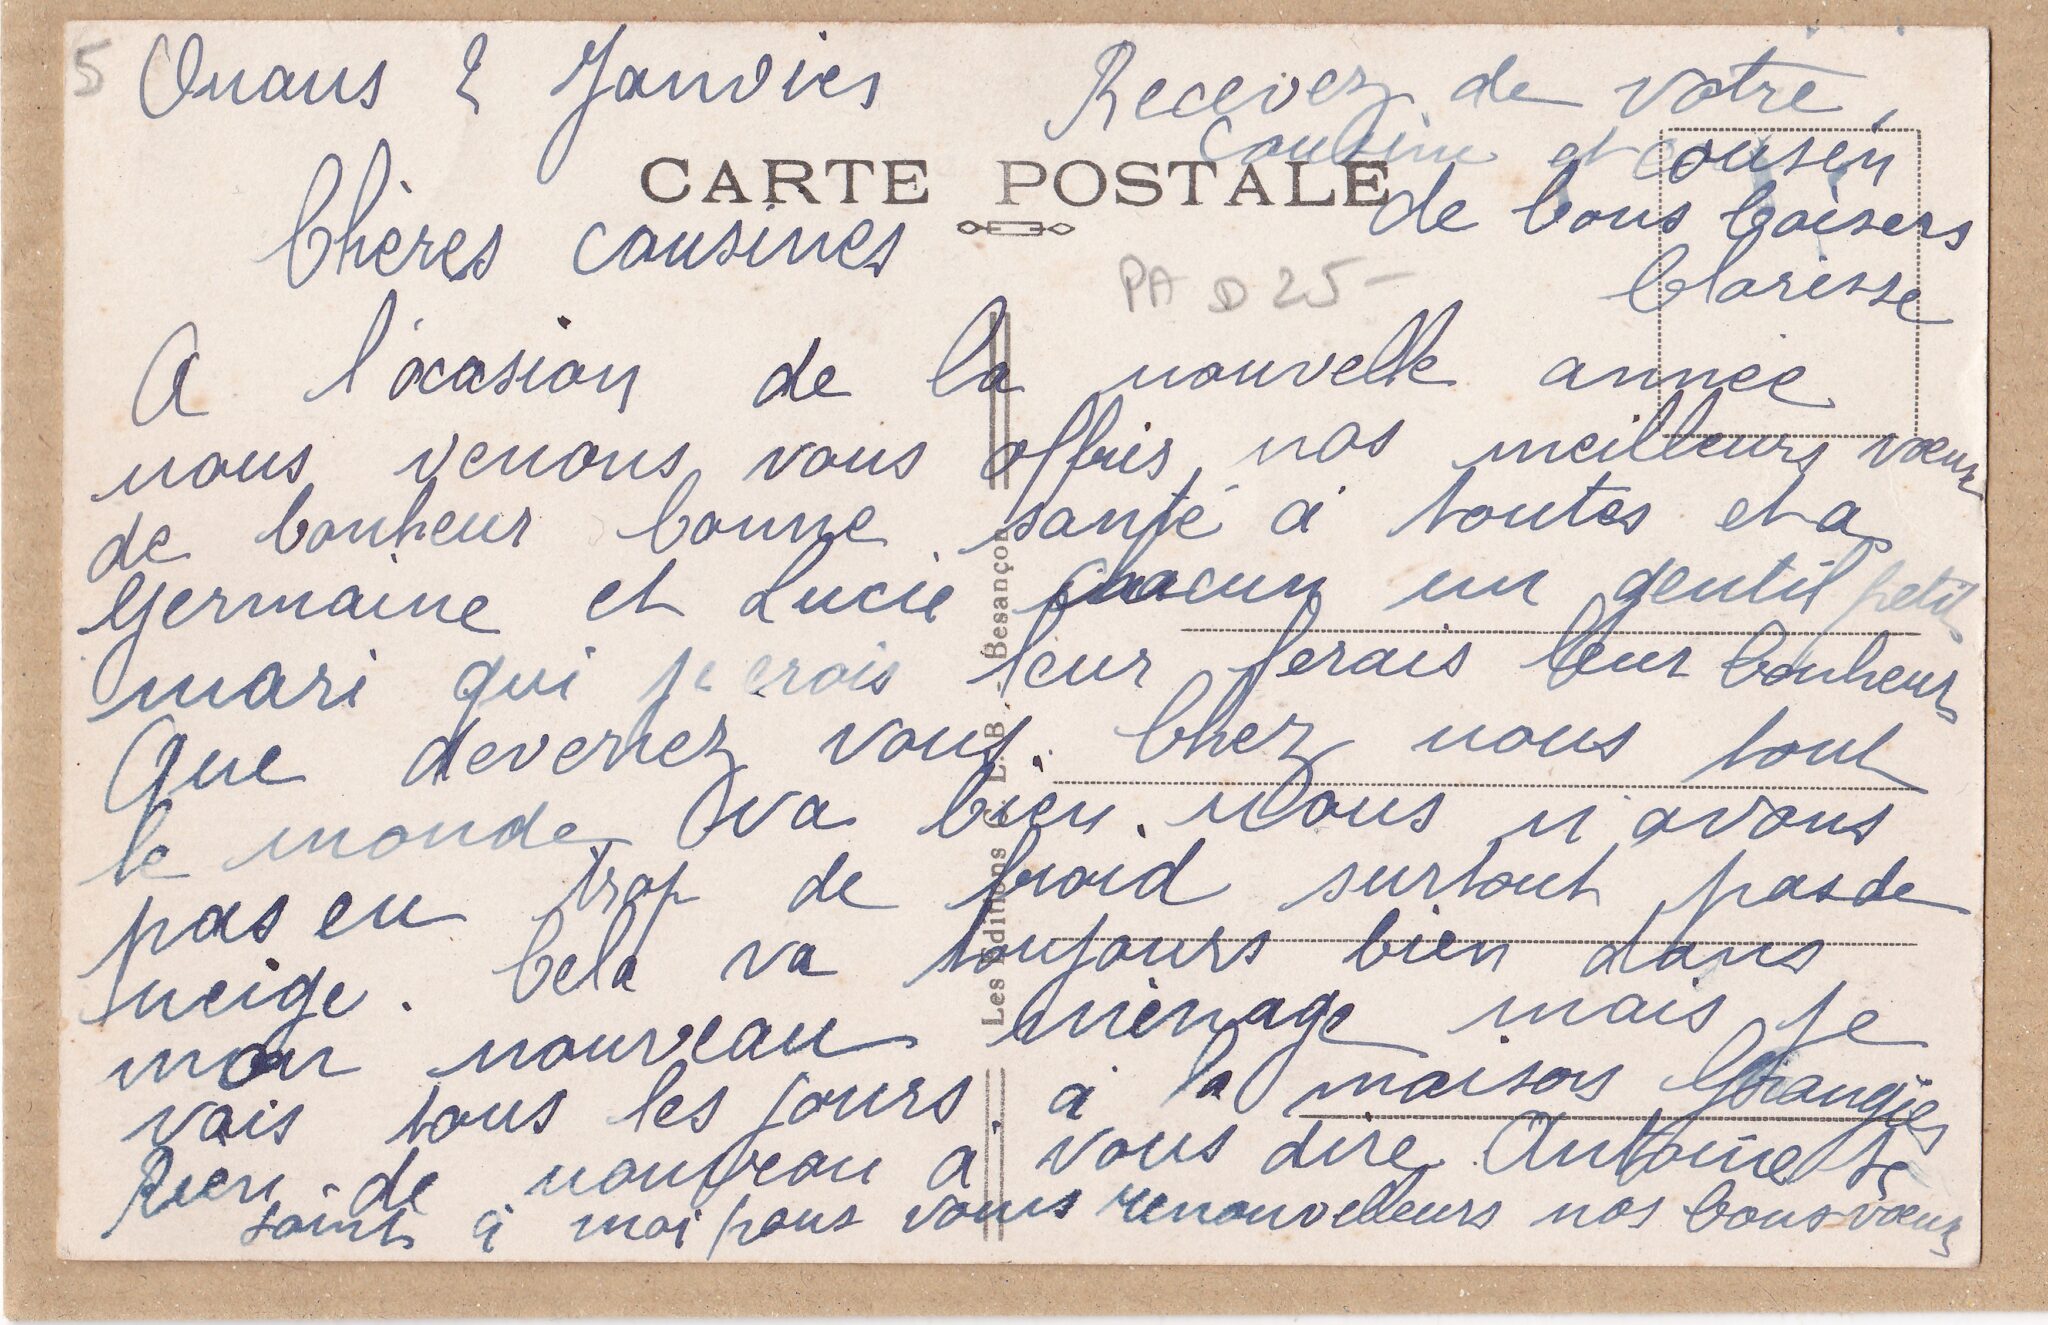 5
Onans 2 Janvier
CARTE POSTALE
Chères cousines
PA D 25-
A l'ocasion de la nouvelle année
nous venons vous offrir nos meilleurs vœux
de bonheur bonne santé à toutes et a
Germaine et Lucie chacun un gentil petit
mari qui je crois leur ferais leur bonheur
Que devenez vous. Chez nous tout
le monde va bien. Nous n'avons
pas eu trop de froid surtout pas de
neige. Cela va toujours bien dans
mon nouveau mènage mais je
vais tous les jours à la maison Grangier
Rien de nouveau a vous dire Antoine se
joint à moi pour vous renouvelleurs nos bons vœux
Recevez de votre
cousine et cousin
de bons baisers
Clarisse
Les Editions C. L. B. - Besançon